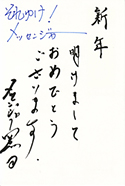 新年
明けまして
おめでとう
ございます。
それゆけ!
メッセンジャー